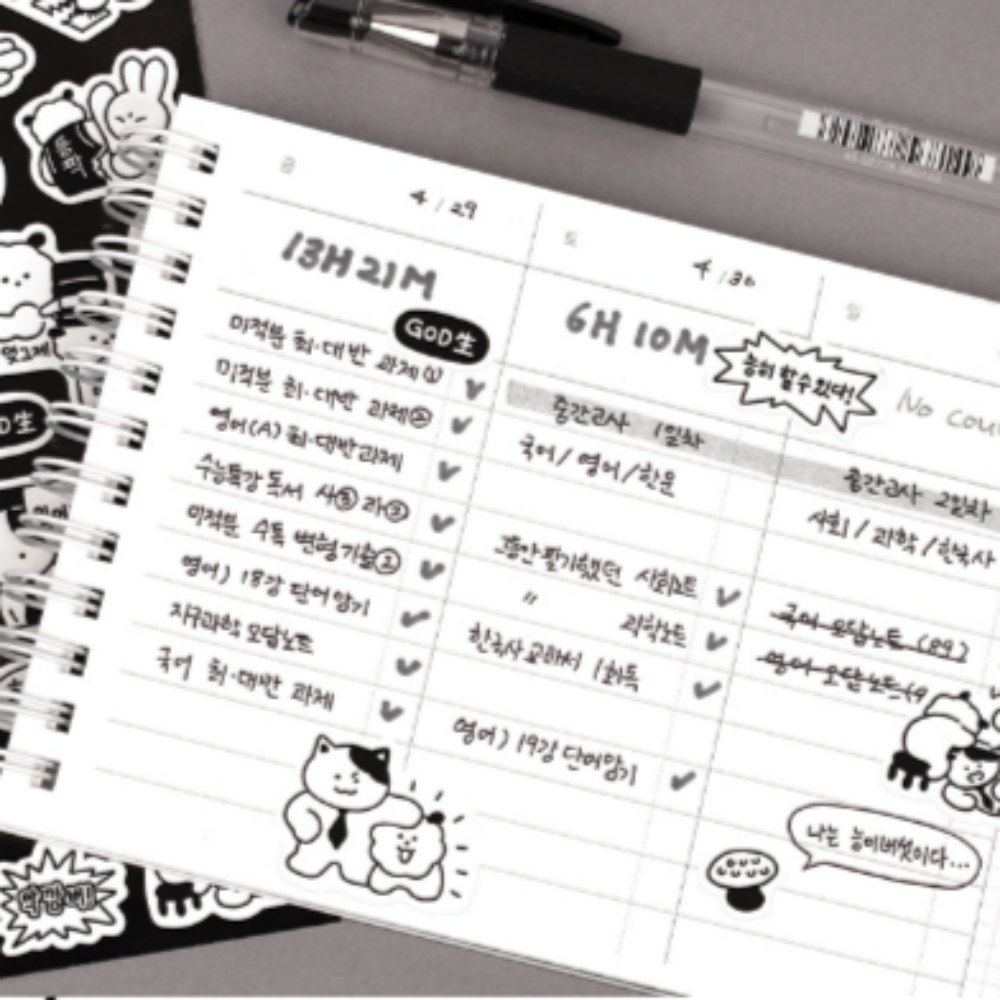 금
4/29
13H 21M
GOD生
미적분 최·대반 과제①
미적분 최·대반 과제②
영어(A) 최·대반 과제
수능특강 독서 사⑤ 과②
미적분 수특 변형기출②
영어) 18강 단어암기
지구과학 오답노트
국어 최·대반 과제
토
4/30
6H 10M
능히 할 수 있다!
중간고사 1일차
국어/영어/한문
그동안 필기했던 사회노트
〃 과학노트
한국사 교과서 1회독
영어) 19강 단어암기
일
No
중간고사 2일차
사회/과학/한국사
국어 오답노트 (89)
영어 오답노트
나는 능이버섯이다...
GOD生